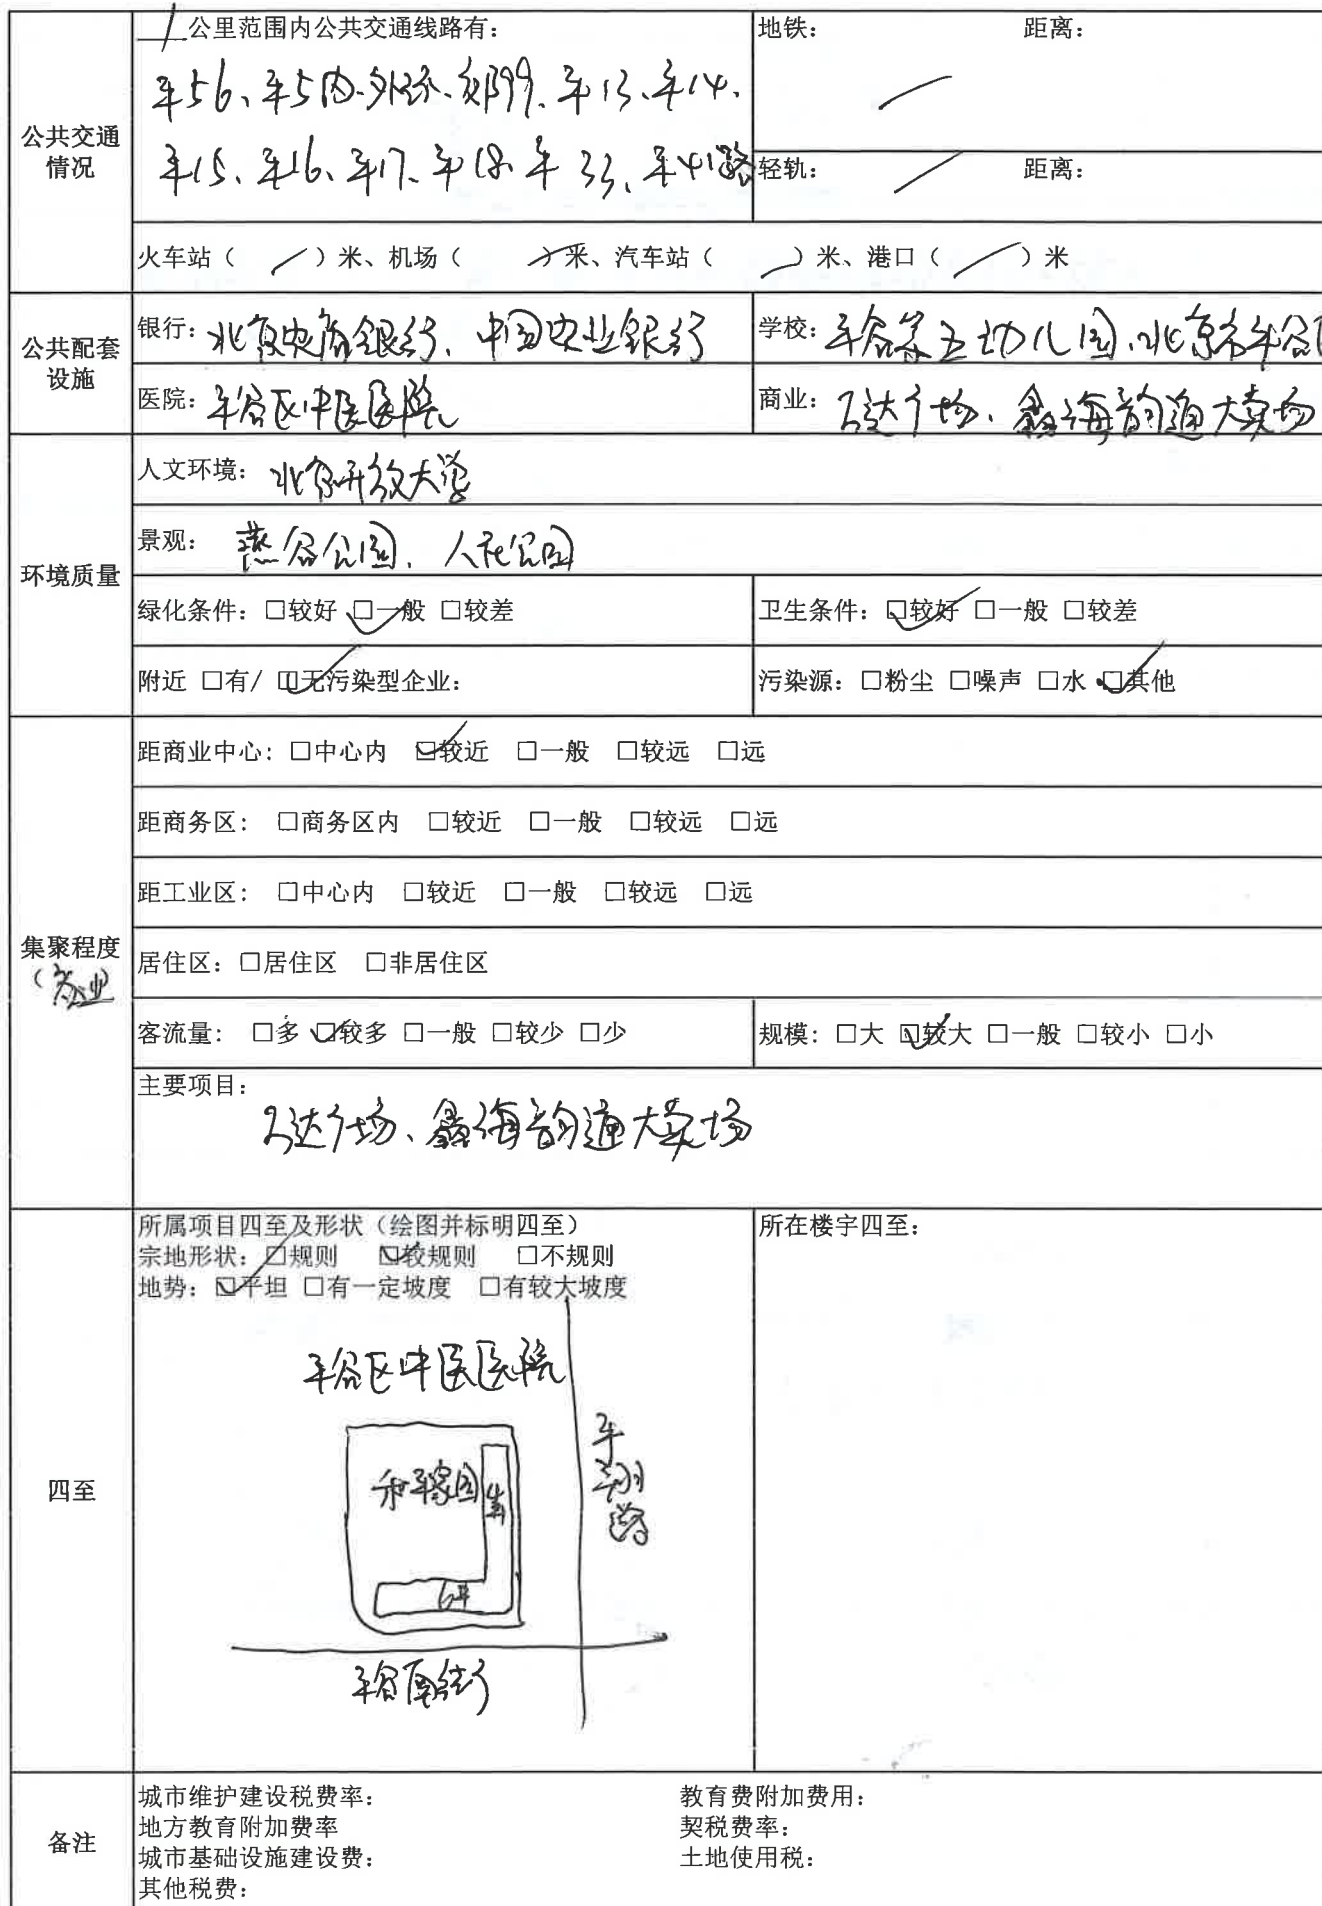 1公里范围内公共交通线路有：
地铁： 距离：
平56、平5内、外环、郊99、平13、平14、
公共交通情况
平15、平16、平17、平18、平33、平41路
轻轨： 距离：
火车站（ ）米、机场（ ）米、汽车站（ ）米、港口（ ）米
公共配套设施
银行：北京农商银行、中国农业银行
学校：平谷第五幼儿园、北京市平谷
医院：平谷区中医医院
商业：万达广场、鑫海韵通大卖场
环境质量
人文环境：北京开放大学
景观：燕谷公园、人民公园
绿化条件：□较好 ☑一般 □较差
卫生条件：☑较好 □一般 □较差
附近 □有/ ☑无污染型企业：
污染源：□粉尘 □噪声 □水 ☑其他
集聚程度
（商业）
距商业中心：□中心内 ☑较近 □一般 □较远 □远
距商务区： □商务区内 □较近 □一般 □较远 □远
距工业区： □中心内 □较近 □一般 □较远 □远
居住区：□居住区 □非居住区
客流量： □多 ☑较多 □一般 □较少 □少
规模：□大 ☑较大 □一般 □较小 □小
主要项目：
万达广场、鑫海韵通大卖场
四至
所属项目四至及形状（绘图并标明四至）
宗地形状：□规则 ☑较规则 □不规则
地势：☑平坦 □有一定坡度 □有较大坡度
所在楼宇四至：
平谷区中医医院
和平家园
平翔路
平谷南街
备注
城市维护建设税费率： 教育费附加费用：
地方教育附加费率 契税费率：
城市基础设施建设费： 土地使用税：
其他税费：